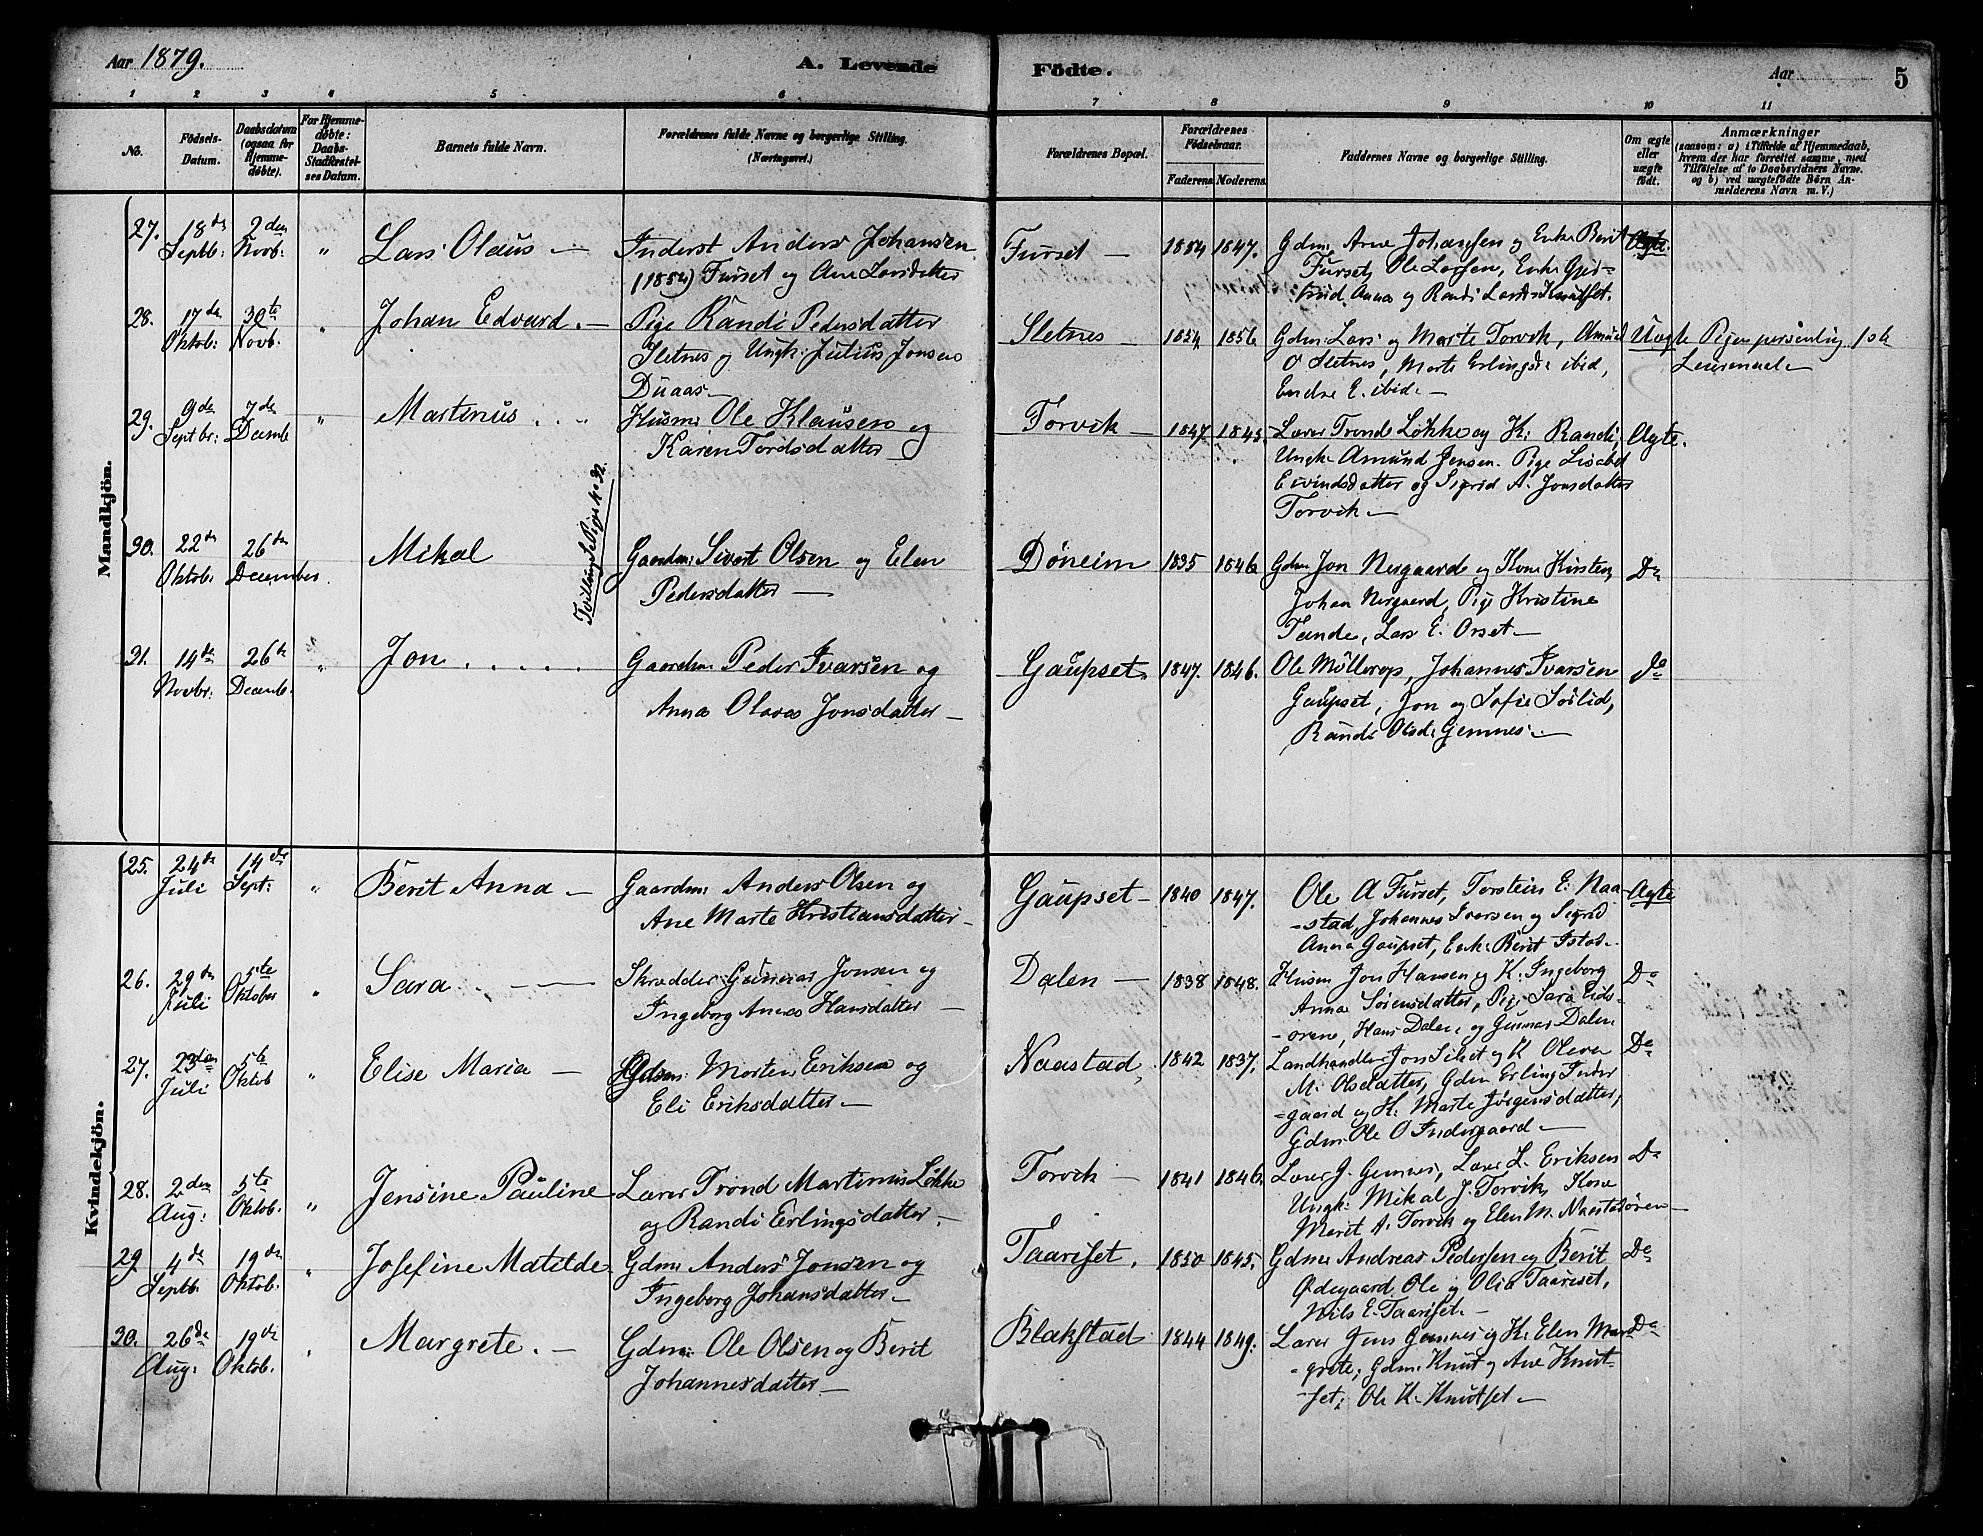 Aar 1879.
A. Levende Födte.
Aar
5
1 2 3 4 5 6 7 8 9 10 11
No.
Födsels-
Datum.
Daabsdatum
(ogsaa for
Hjemme-
døbte).
For Hjemme-
døbte:
Daabs-
Stadfæstel-
ses Datum.
Barnets fulde Navn.
Forældrenes fulde Navne og borgerlige Stilling.
(Næringsvei.)
Forældrenes Bopæl.
Forældrenes
Fødselsaar.
Faderens. Moderens.
Faddernes Navne og borgerlige Stilling.
Om ægte
eller
uægte
født.
Anmærkninger
(saasom: a) i Tilfælde af Hjemmedaab,
hvem der har forrettet samme, med
Tilföielse af to Daabsvidners Navne.
og b) ved uægtefödte Börn An-
melderens Navn m. V.)
Mandkjön.
27. 18de Septb: 2den Novb: " Lars Olaus —
Inderst Anders Johansen
(1854) Furset og Ane Larsdatter
Furset — 1854 1847.
Gdm: Arne Johansen og Enke Berit
Furset, Ole Larsen, Enke Gjer-
trud Anna og Randi Larsd: Knutset.
Ægte.
28. 17de Oktob: 30te Novb. " Johan Edvard. —
Pige Randi Pedersdatter
Sletnes og Ungk: Julius Jonsen
Duaas —
Sletnes — 1854 1856
Gdm: Lars og Marte Torvik, Amund
O Sletnes, Marte Erlingsd: ibid,
Endre E. ibid: —
Uægte Pigen personlig. 1ste
Leiermaal —
29. 9de Septbr: 7de Decemb " Martinus . . .
Husm: Ole Klausen og
Karen Tordsdatter
Torvik — 1847 1845
Lærer Tronde Løkke og K: Randi,
Ungk: Amund Jensen. Pige Lisabet
Eivindsdatter og Sigrid A. Jonsdatter
Torvik —
Ægte.
30. 22de Oktob: 26de December. Mikal
Tvilling Se Pige No 32.
Gaardm: Sivert Olsen og Elen
Pedersdatter —
Döneim 1835 1846
Gdm Jon Nergaard og Kone Kirsten,
Johan Nergaard, Pige Kristine
Tande, Lars E. Orset —
Do
31. 14de Novbr: 26de Decemb. " Jon . . . . .
Gaardm: Peder Ivarsen og
Anna Olava Jonsdatter —
Gaupset. 1847. 1846.
Ole Möllerop, Johannes Ivarsen
Gaupset, Jon og Sofie Sörlid,
Randi Olsd: Gemnes —
do
Kvindekjön.
25. 24de Juli 14de Sept: " Berit Anna —
Gaardm: Anders Olsen og
Ane Marte Kristiansdatter —
Gaupset — 1840 1847.
Ole A Furset, Torstein E: Naa-
-stad, Johannes Ivarsen og Sigrid
Anna Gaupset, Enk: Berit Istad —
Ægte
26. 29de Juli 5te Oktober " Sara . — —
Skrædder Gunnar Jonsen og
Ingeborg Anna Hansdatter —
Dalen — 1838 1848.
Husm Jon Hansen og K. Ingeborg
Anna Sörensdatter, Pige Sara Eids-
-örene, Hans Dalen og Gunnar Dalen
Do
27. 23den Juli 5te Oktob " Elise Maria —
Gdm: Morten Eriksen og
Eli Eriksdatter —
Naastad, 1842 1837.
Landhandler Jon Silset og K Olava
M: Olsdatter, Gdm Erling Inder-
-gaard og K: Marte Jörgensdatter,
Gdm: Ole O Indergaard —
Do
28. 2den Aug: 5te Oktob. " Jensine Pauline
Lærer Trond Martinus Løkke
og Randi Erlingsdatter —
Torvik — 1841 1846.
Lærer J. Gemnes, Lærer L. Eriksen
Ungk: Mikal J. Torvik, Kone
Merit A. Torvik og Elen M. Naastadören —
Do
29. 4de Septb. 19de Oktob. " Josefine Matilde
Gdm: Anders Jonsen og
Ingeborg Johansdatter —
Taariset. 1850 1845.
Gdm: Andreas Pedersen og Berit
Ødegaard, Ole og Olia Taariset,
Nils E. Taariset. —
Do
30. 26de Aug: 19de Oktob. " Margrete. —
Gdm: Ole Olsen og Berit
Johannesdatter —
Blakstad. 1844 1849.
Lærer Jens Gemnes og K: Elen Mar-
-grete, Gdm: Knut og Ane Knut-
-set, Ole K. Knutset —
Do